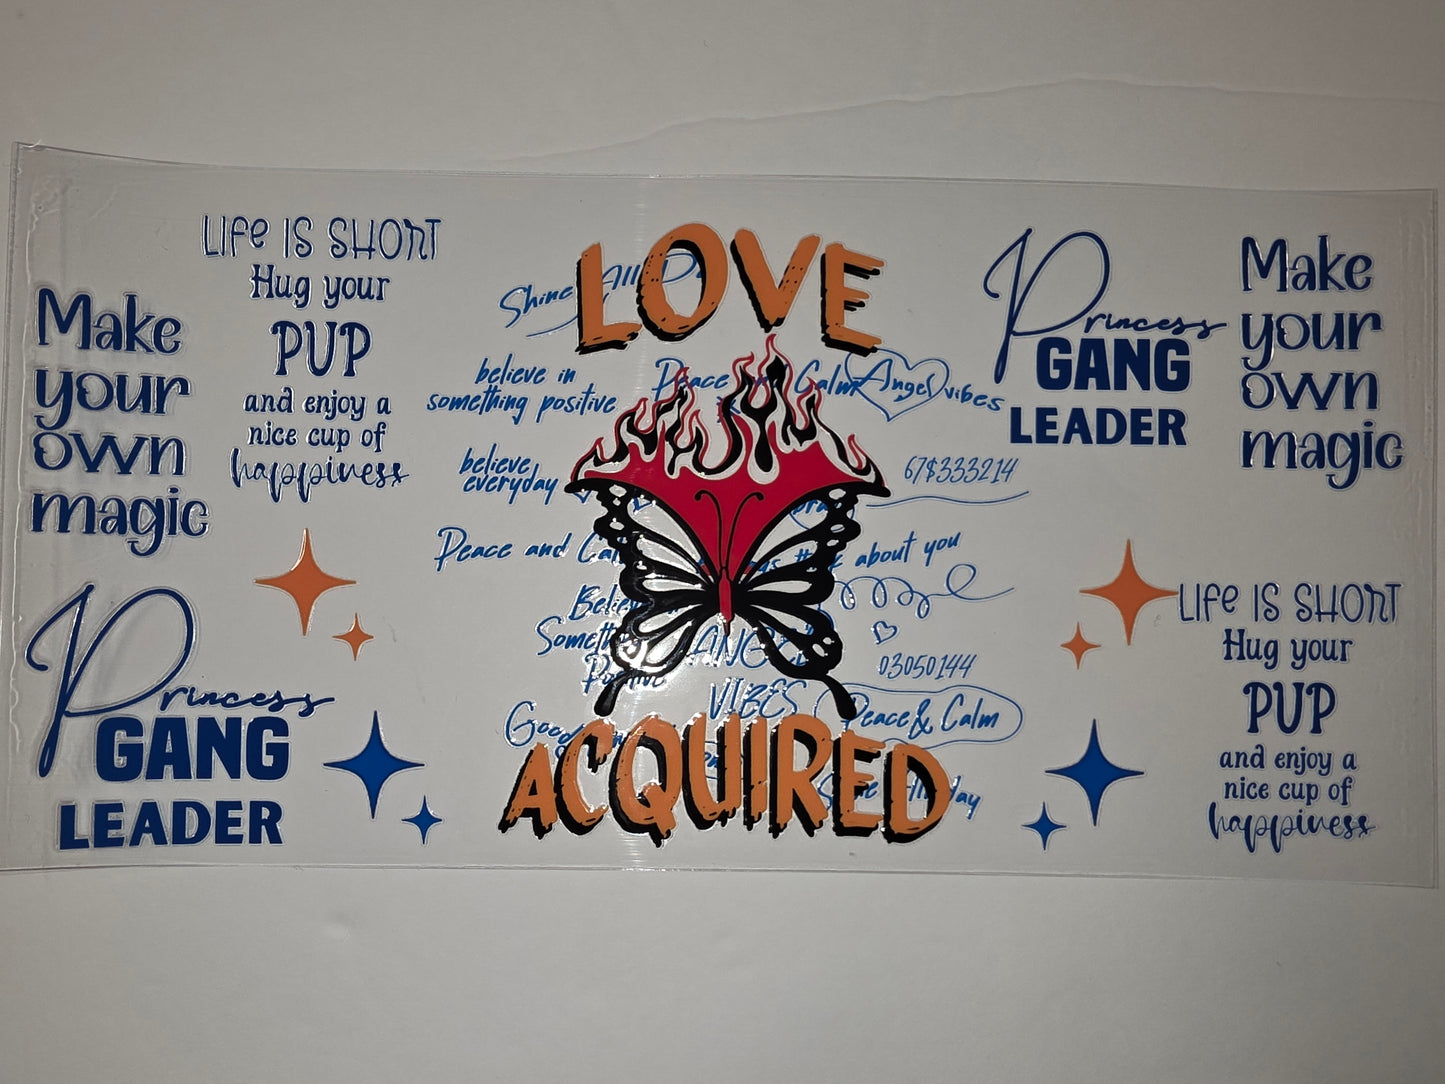 Make
your
own
magic
LIFE IS SHORT
Hug your
PUP
and enjoy a
nice cup of
happiness
Princess
GANG
LEADER
LOVE
Shine All D
believe in
something positive
Peace Calm
Angel vibes
believe
everyday
67$333214
Peace and Cal
about you
Believe
Something
Positive
ANGEL
VIBES
03050144
Peace & Calm
Good
ACQUIRED
Princess
GANG
LEADER
Make
your
own
magic
LIFE IS SHORT
Hug your
PUP
and enjoy a
nice cup of
happiness